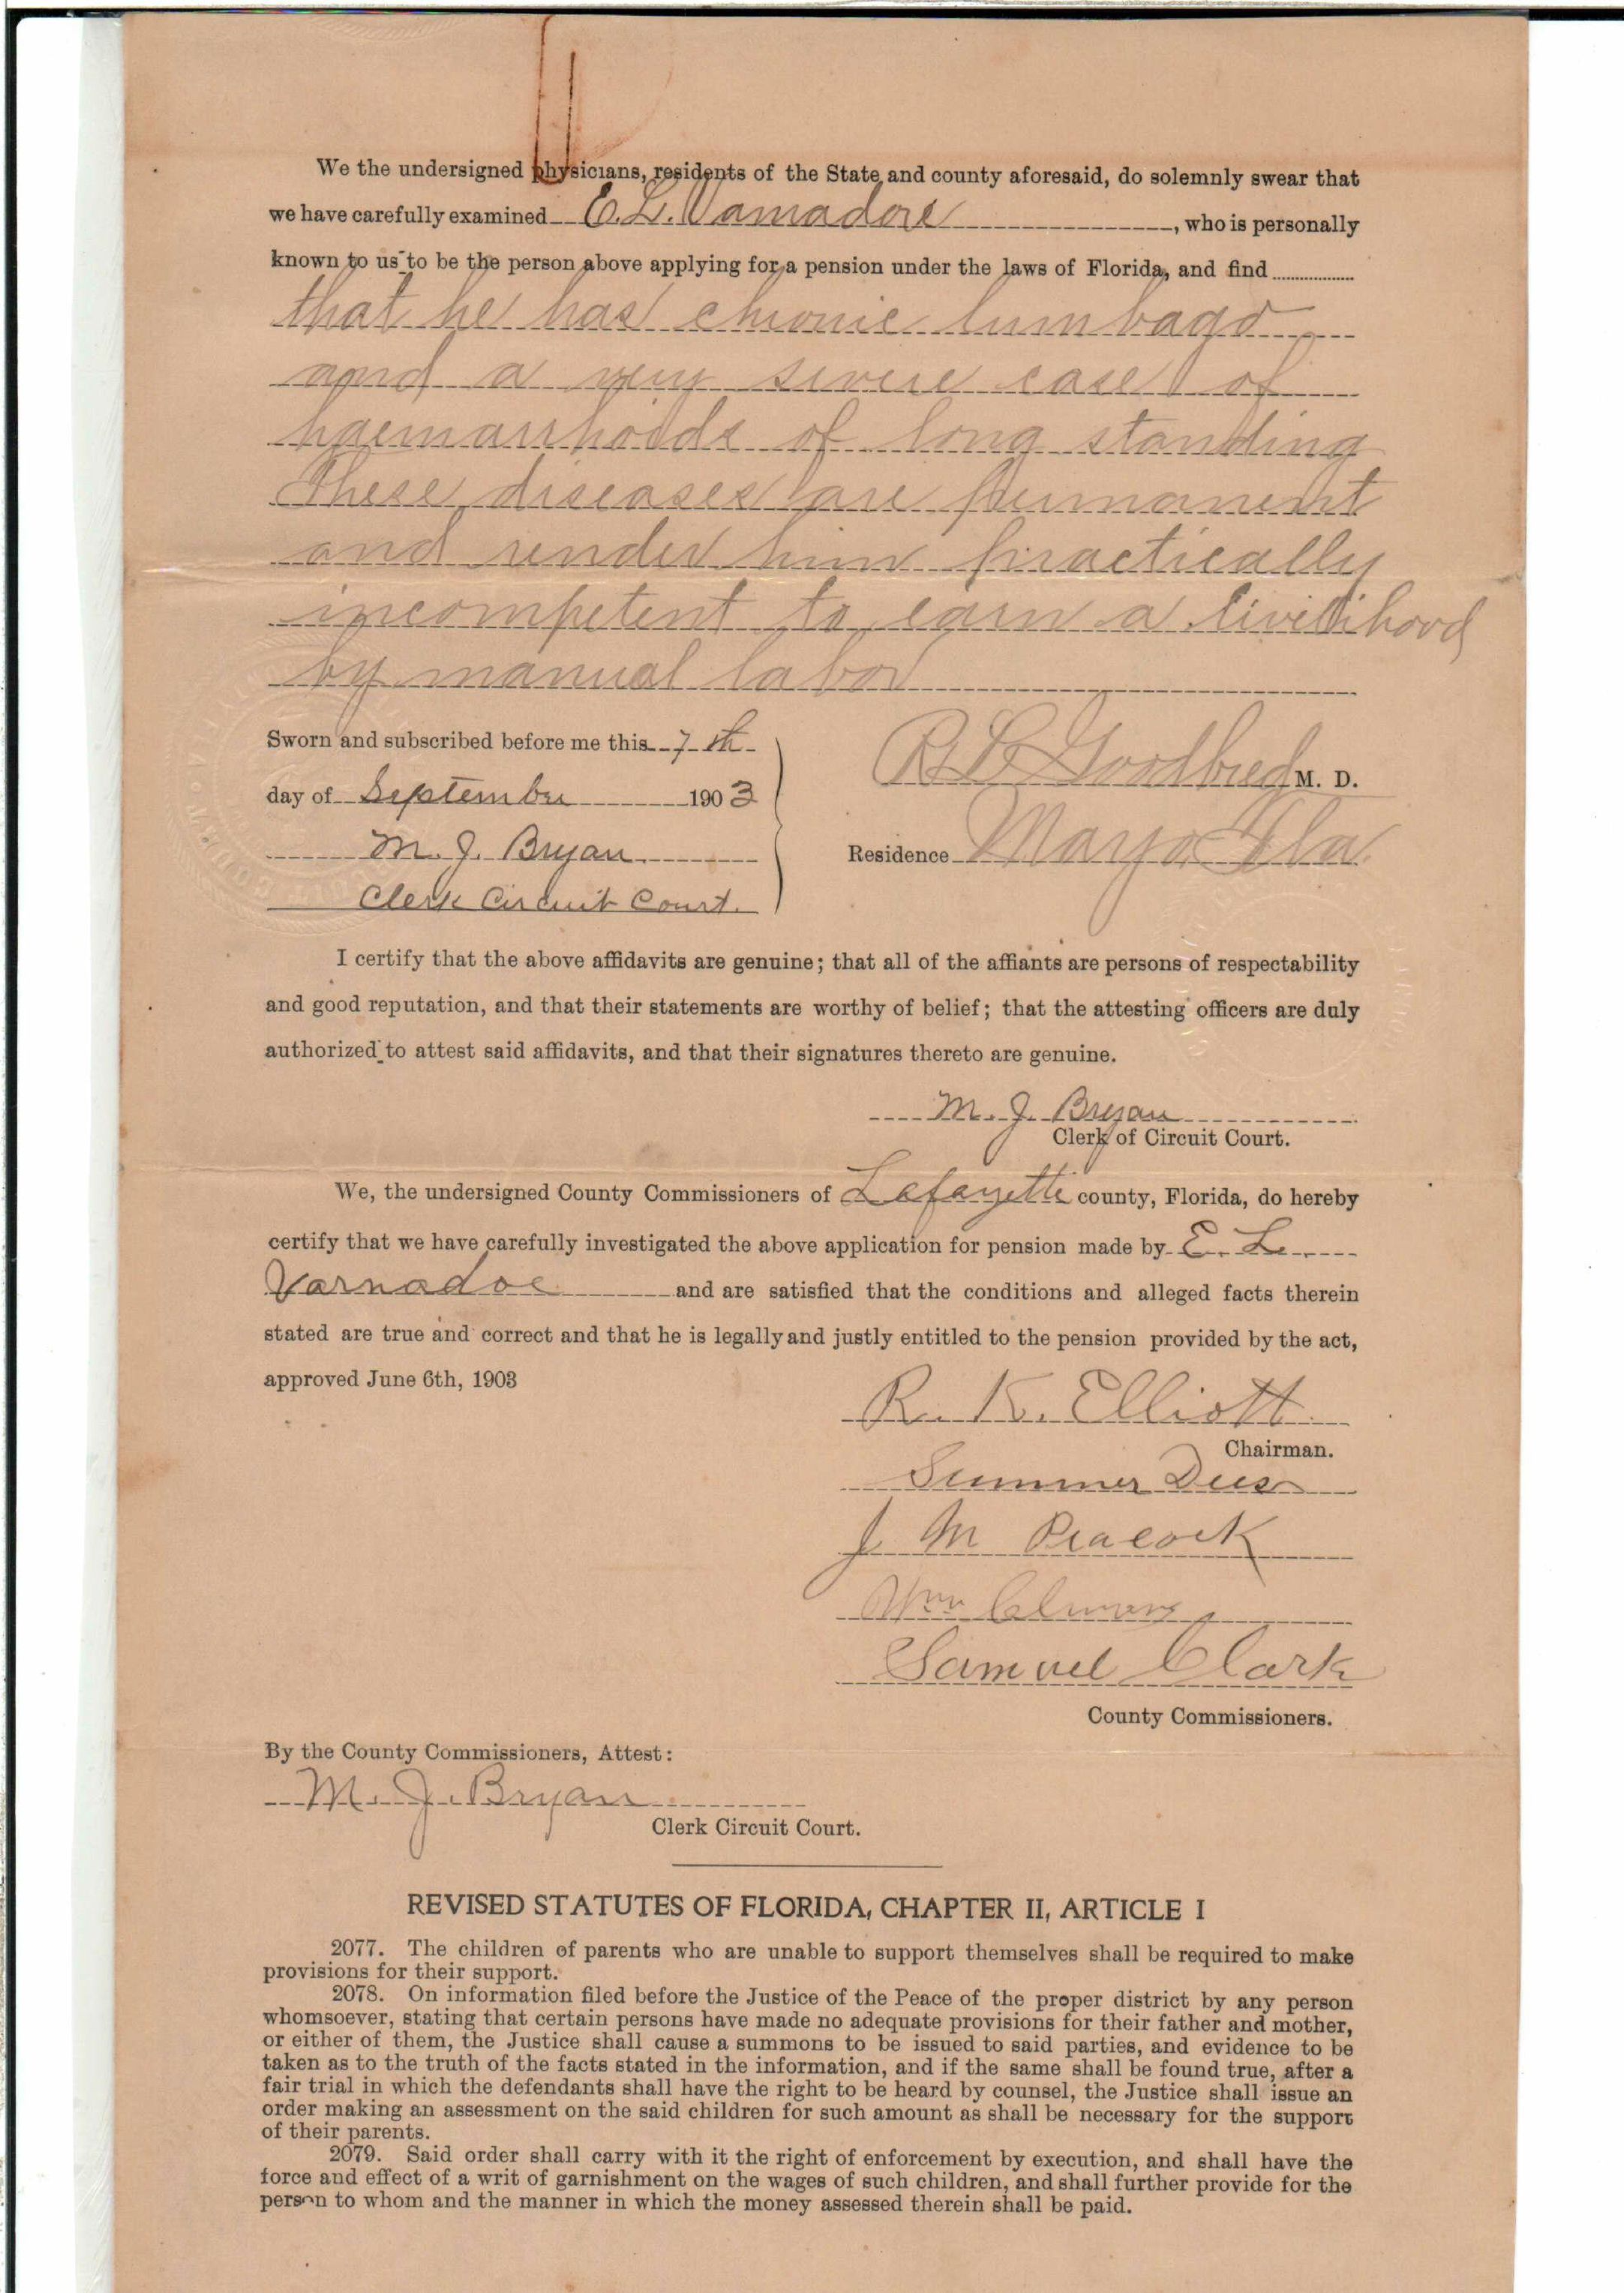 We the undersigned physicians, residents of the State and county aforesaid, do solemnly swear that
we have carefully examined E. L. Varnadore, who is personally
known to us to be the person above applying for a pension under the laws of Florida, and find
that he has chronic lumbago
and a very severe case of
haemarrhoids of long standing
These diseases are permanent
and render him practically
incompetent to earn a livelihood
by manual labor
Sworn and subscribed before me this 7th
day of September 1903
M. J. Bryan
Clerk Circuit Court.
R L Goodbred M. D.
Residence Mayo Fla.
I certify that the above affidavits are genuine; that all of the affiants are persons of respectability
and good reputation, and that their statements are worthy of belief; that the attesting officers are duly
authorized to attest said affidavits, and that their signatures thereto are genuine.
M. J. Bryan
Clerk of Circuit Court.
We, the undersigned County Commissioners of Lafayette county, Florida, do hereby
certify that we have carefully investigated the above application for pension made by E. L.
Varnadoe and are satisfied that the conditions and alleged facts therein
stated are true and correct and that he is legally and justly entitled to the pension provided by the act,
approved June 6th, 1903
R. K. Elliott
Chairman.
Summer Dees
J M Peacock
Wm
Samuel Clark
County Commissioners.
By the County Commissioners, Attest:
M. J. Bryan
Clerk Circuit Court.
REVISED STATUTES OF FLORIDA, CHAPTER II, ARTICLE I
2077. The children of parents who are unable to support themselves shall be required to make
provisions for their support.
2078. On information filed before the Justice of the Peace of the proper district by any person
whomsoever, stating that certain persons have made no adequate provisions for their father and mother,
or either of them, the Justice shall cause a summons to be issued to said parties, and evidence to be
taken as to the truth of the facts stated in the information, and if the same shall be found true, after a
fair trial in which the defendants shall have the right to be heard by counsel, the Justice shall issue an
order making an assessment on the said children for such amount as shall be necessary for the support
of their parents.
2079. Said order shall carry with it the right of enforcement by execution, and shall have the
force and effect of a writ of garnishment on the wages of such children, and shall further provide for the
person to whom and the manner in which the money assessed therein shall be paid.